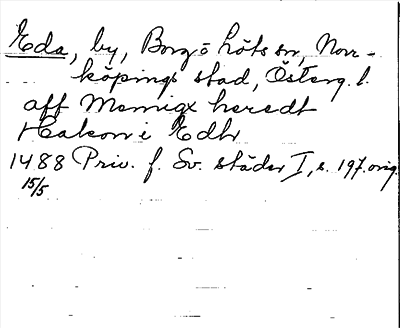 Eda, by, Borgs höts sn, Norr-
köpings stad, Österg. l.
aff Memigx heredt
Hakon i Edh
1488 Priv. f. Sv. städer I, s. 197. orig.
15/5